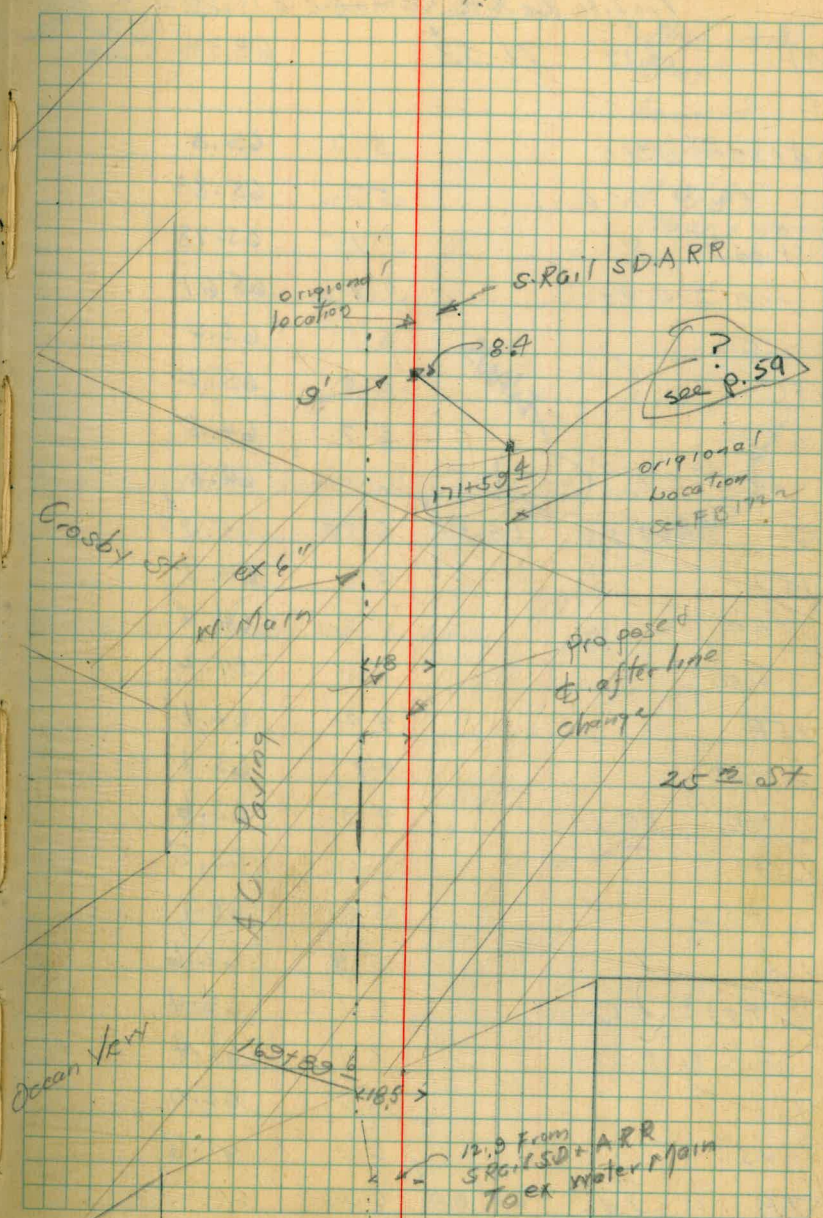 S. Rail S.D.A RR
origional
Location
8.4
9'
?
see p. 59
171+59 4
origional
Location
See FB
Crosby St
ex 6"
W. Main
18
Proposed
℄ after line
Change
25 th St
A.C. Paving
Ocean View
169+89 6
18.5
12.9 From
S Rail SD + A RR
To ex water Main